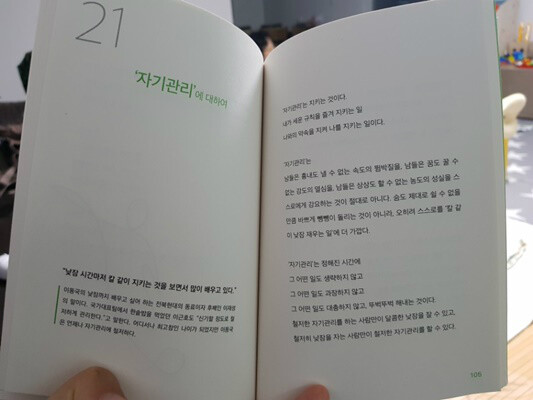 21
'자기관리'에 대하여
"낮잠 시간마저 칼 같이 지키는 것을 보면서 많이 배우고 있다."
이동국의 낮잠까지 배우고 싶어 하는 전북현대의 동료이자 후배인 이재성
의 말이다. 국가대표팀에서 한솥밥을 먹었던 이근호도 "신기할 정도로 철
저하게 관리한다."고 말한다. 어디서나 최고참인 나이가 되었지만 이동국
은 언제나 자기관리에 철저하다.
'자기관리'는 지키는 것이다.
내가 세운 규칙을 즐겨 지키는 일
나와의 약속을 지켜 나를 지키는 일이다.
'자기관리'는
남들은 흉내도 낼 수 없는 속도의 뜀박질을, 남들은 꿈도 꿀 수
없는 강도의 열심을, 남들은 상상도 할 수 없는 농도의 성실을 스
스로에게 강요하는 것이 절대로 아니다. 숨도 제대로 쉴 수 없을
만큼 바쁘게 뺑뺑이 돌리는 것이 아니라, 오히려 스스로를 '칼 같
이 낮잠 재우는 일'에 더 가깝다.
'자기관리'는 정해진 시간에
그 어떤 일도 생략하지 않고
그 어떤 일도 과장하지 않고
그 어떤 일도 대충하지 않고, 뚜벅뚜벅 해내는 것이다.
철저한 자기관리를 하는 사람만이 달콤한 낮잠을 잘 수 있고,
철저히 낮잠을 자는 사람만이 철저한 자기관리를 할 수 있다.
105